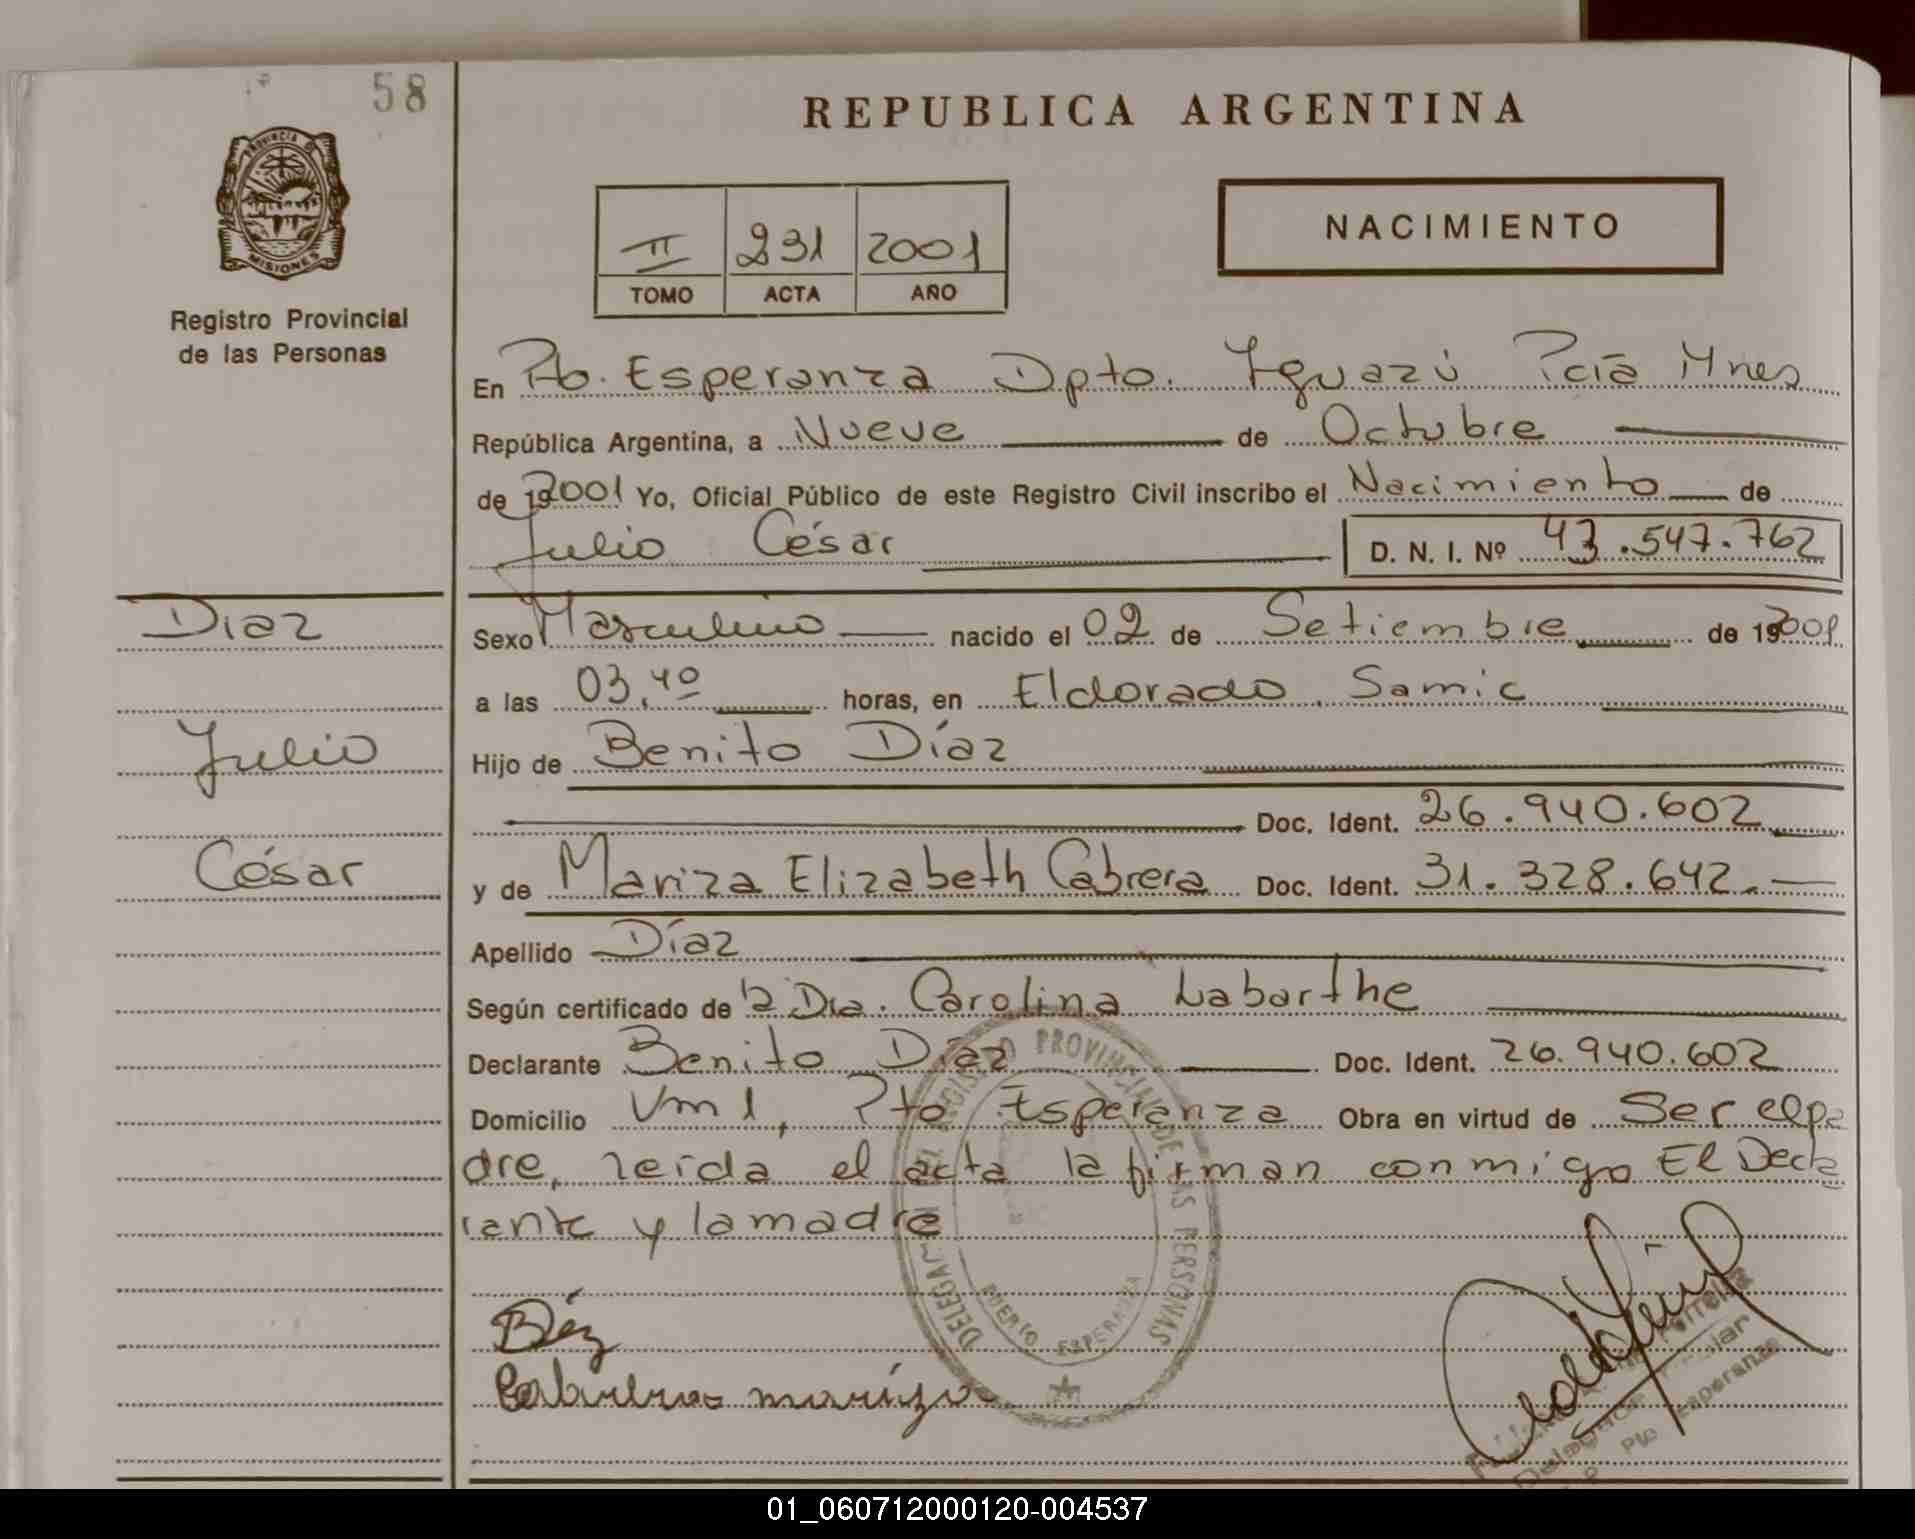 58
REPUBLICA ARGENTINA
PROVINCIA DE
MISIONES
Registro Provincial
de las Personas
II 231 2001
TOMO ACTA AÑO
NACIMIENTO
En Pto. Esperanza Dpto. Iguazú Pcia Mnes
República Argentina, a Nueve de Octubre
de 192001 Yo, Oficial Público de este Registro Civil inscribo el Nacimiento de
Julio César D. N. I. Nº 43.547.762
Diaz
Julio
César
Sexo Masculino nacido el 02 de Setiembre de 192001
a las 03,40 horas, en Eldorado, Samic
Hijo de Benito Díaz
Doc. Ident. 26.940.602
y de Mariza Elizabeth Cabrera Doc. Ident. 31.328.642.
Apellido Díaz
Según certificado de la Dra. Carolina Labarthe
Declarante Benito Díaz Doc. Ident. 26.940.602
Domicilio Km 1, Pto Esperanza Obra en virtud de Ser el pa
dre, leída el acta la firman conmigo El Decla
rante y la madre
DELEGACION DEL REGISTRO PROVINCIAL DE LAS PERSONAS
PUERTO ESPERANZA
Díaz
Cabrera mariza
Pto Esperanza
01_060712000120-004537